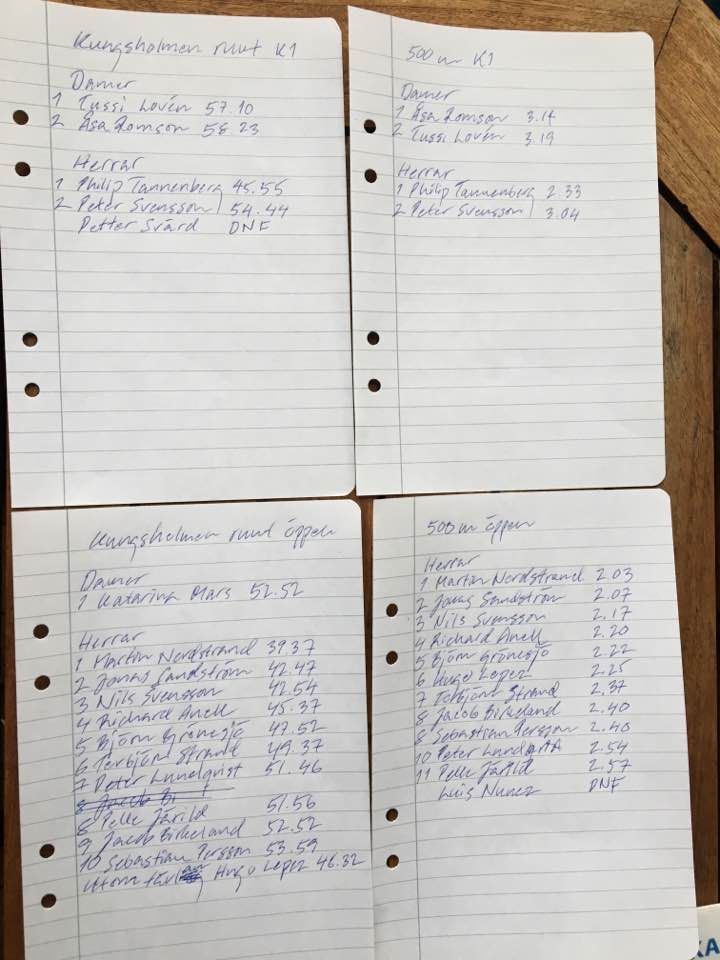 Kungsholmen runt K1
Damer
1 Tussi Lovén 57.10
2 Åsa Romson 58.23
Herrar
1 Philip Tannenberg 45.55
2 Peter Svensson 54.44
Petter Svärd DNF
500 m K1
Damer
1 Åsa Romson 3.14
2 Tussi Lovén 3.19
Herrar
1 Philip Tannenberg 2.33
2 Peter Svensson 3.04
Kungsholmen runt öppen
Damer
1 Katarina Mars 52.52
Herrar
1 Martin Nordstrand 39.37
2 Jonas Sundström 42.47
3 Nils Svensson 42.54
4 Richard Anell 45.37
5 Björn Grönesjö 47.52
6 Torbjörn Strand 49.37
7 Peter Lundqvist 51.46
8 Jacob Bi
8 Pelle Järild 51.56
9 Jacob Birkeland 52.52
10 Sebastian Persson 53.59
Utom Hugo Lepez 46.32
500 m öppen
Herrar
1 Martin Nordstrand 2.03
2 Jonas Sundström 2.07
3 Nils Svensson 2.17
4 Richard Anell 2.20
5 Björn Grönesjö 2.22
6 Hugo Lepez 2.25
7 Torbjörn Strand 2.37
8 Jacob Birkeland 2.40
8 Sebastian Persson 2.40
10 Peter 2.54
11 Pelle Järild 2.57
Luis Nunez DNF
KA